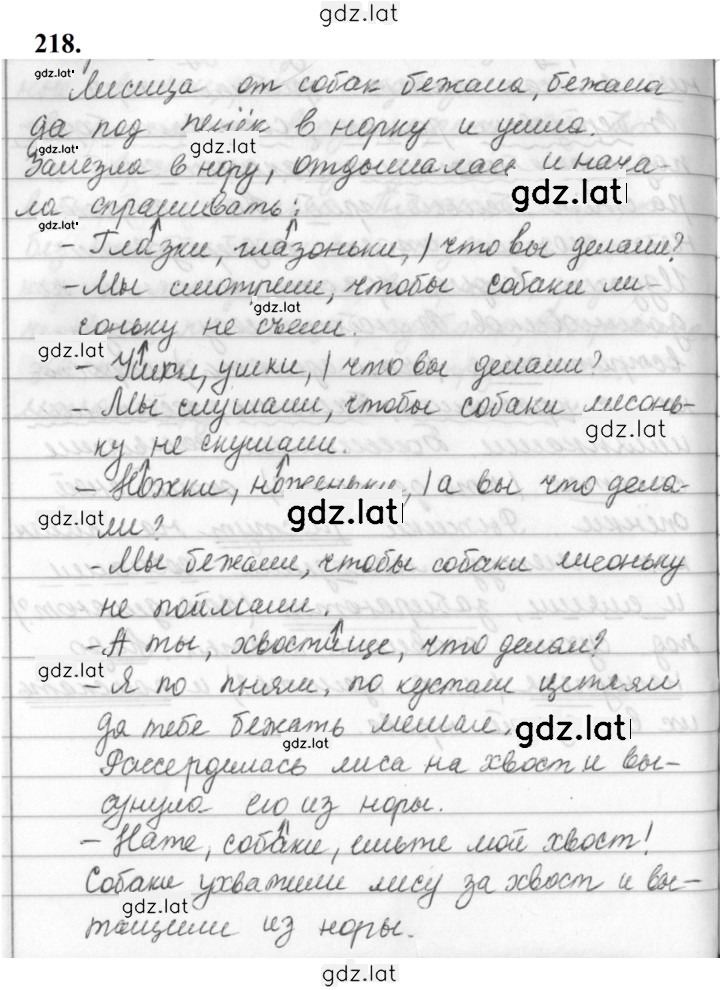 gdz.lat
218.
gdz.lat
Лисица от собак бежала, бежала
да под пенёк в норку и ушла.
gdz.lat
gdz.lat
Залезла в нору, отдышалась и нача-
gdz.lat
ла спрашивать:
gdz.lat
- Глазки, глазоньки, | что вы делали?
- Мы смотрели, чтобы собаки ли-
gdz.lat
соньку не съели.
gdz.lat
- Ушки, ушки, | что вы делали?
- Мы слушали, чтобы собаки лисонь-
gdz.lat
ку не скушали.
- Ножки, ноженьки, | а вы что дела-
gdz.lat
gdz.lat
ли?
- Мы бежали, чтобы собаки лисоньку
не поймали.
- А ты, хвостище, что делал?
gdz.lat
- Я по пням, по кустам цеплял
да тебе бежать мешал.
gdz.lat
gdz.lat
Рассердилась лиса на хвост и вы-
сунула его из норы.
- Нате, собаки, ешьте мой хвост!
gdz.lat
Собаки ухватили лису за хвост и вы-
gdz.lat
тащили из норы.
gdz.lat